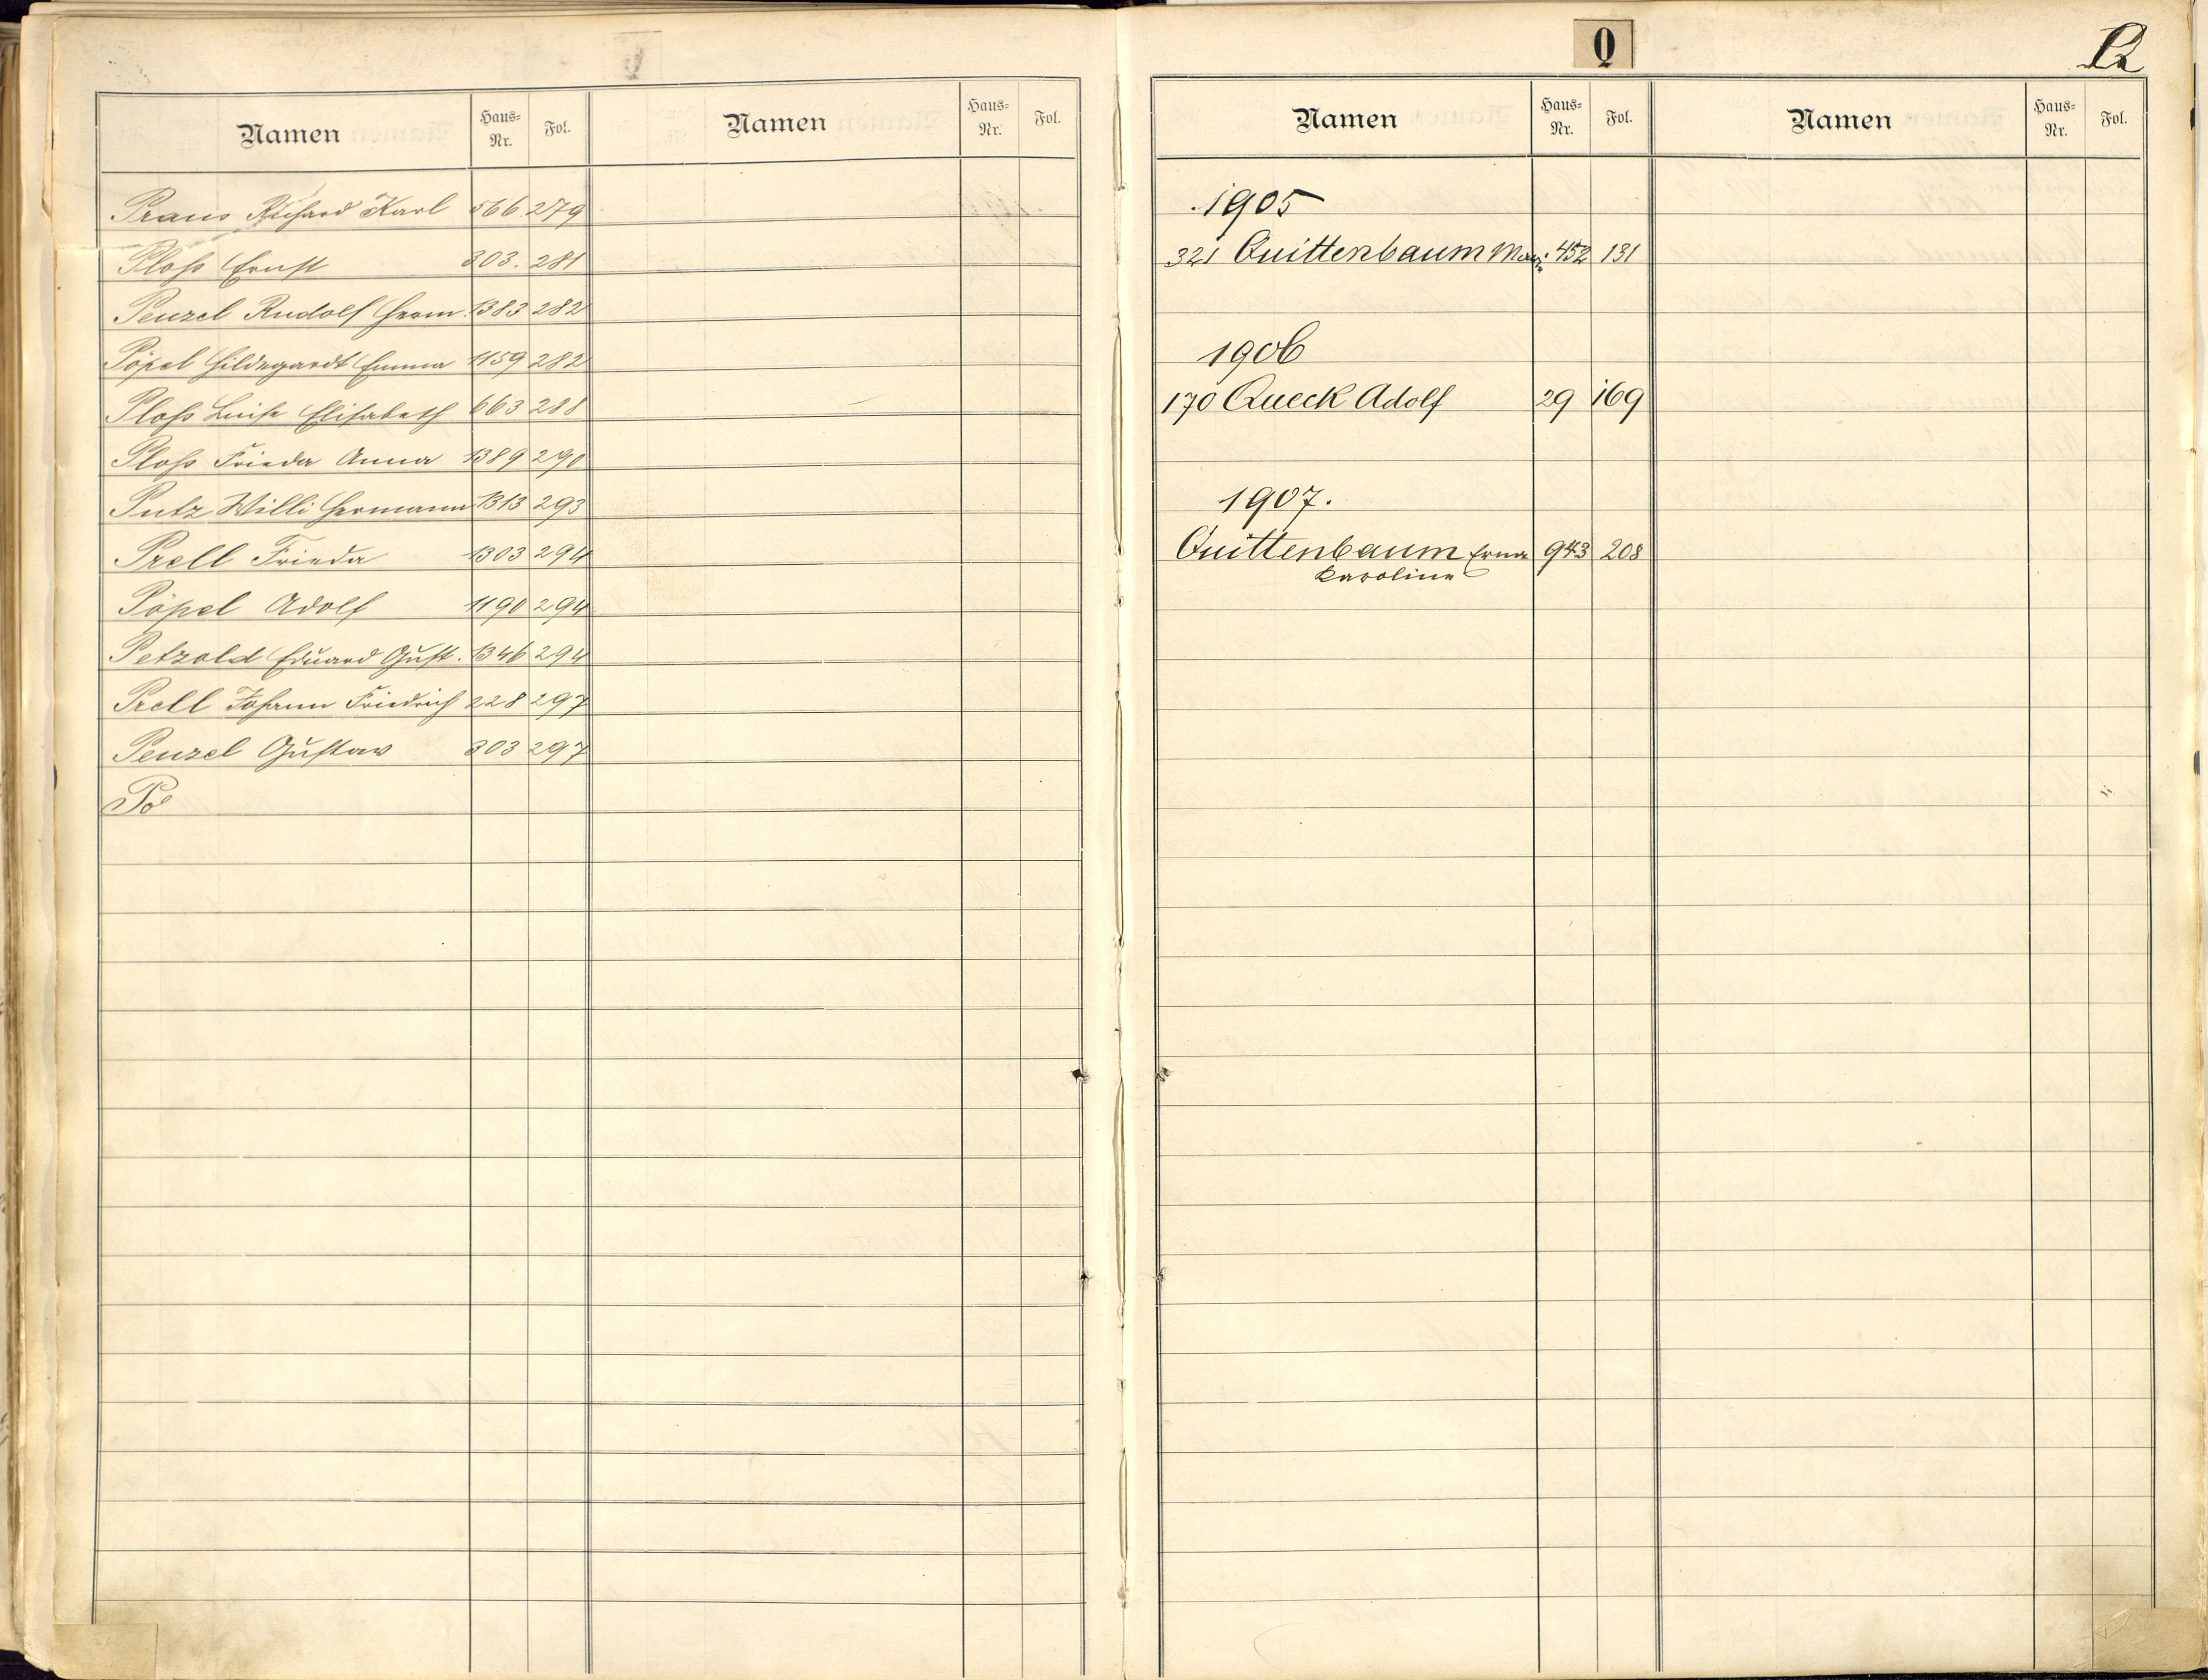 Namen Haus-Nr. Fol. Namen Haus-Nr. Fol.
Praus Richard Karl 566 279
Ploß Ernst 303. 281
Penzel Rudolf Herm. 1383 282
Pöpel Hildegardt Emma 1159 282
Ploß Luise Elisabeth 663 288
Ploß Frieda Anna 1389 290
Putz Willi Hermann 1313 293
Prell Frieda 1303 294
Pöpel Adolf 1190 294
Petzold Eduard Gust. 1346 294
Prell Johann Friedrich 228 297
Penzel Gustav 303 297
Pö
Q
Namen Haus-Nr. Fol. Namen Haus-Nr. Fol.
1905
321 Quittenbaum Marie 452 131
1906
170 Queck Adolf 29 169
1907.
Quittenbaum Erna 943 208
Karoline